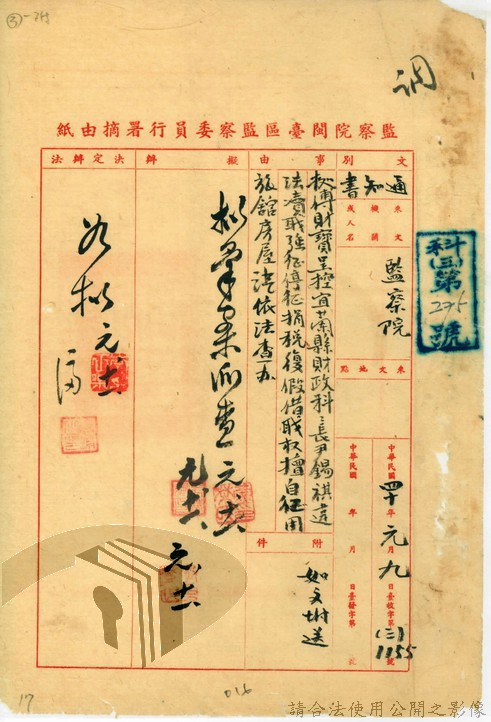 ③
調
監察院閩臺區監察委員行署摘由紙
文別
通知書
來文機關或人名
監察院
來文地點
中華民國四十年元月九日臺收字第(三)1155號
中華民國 年 月 日臺發字第 號
科(三)第275號
事由
財寶呈控宜蘭縣財政科長尹錫祺違
法瀆職強征停征捐稅復假借職權擅自征用
旅館房屋請依法查办
附件
如文附送
擬辦
元、十六
決定辦法
如擬 元、十六
17
016
請合法使用公開之影像